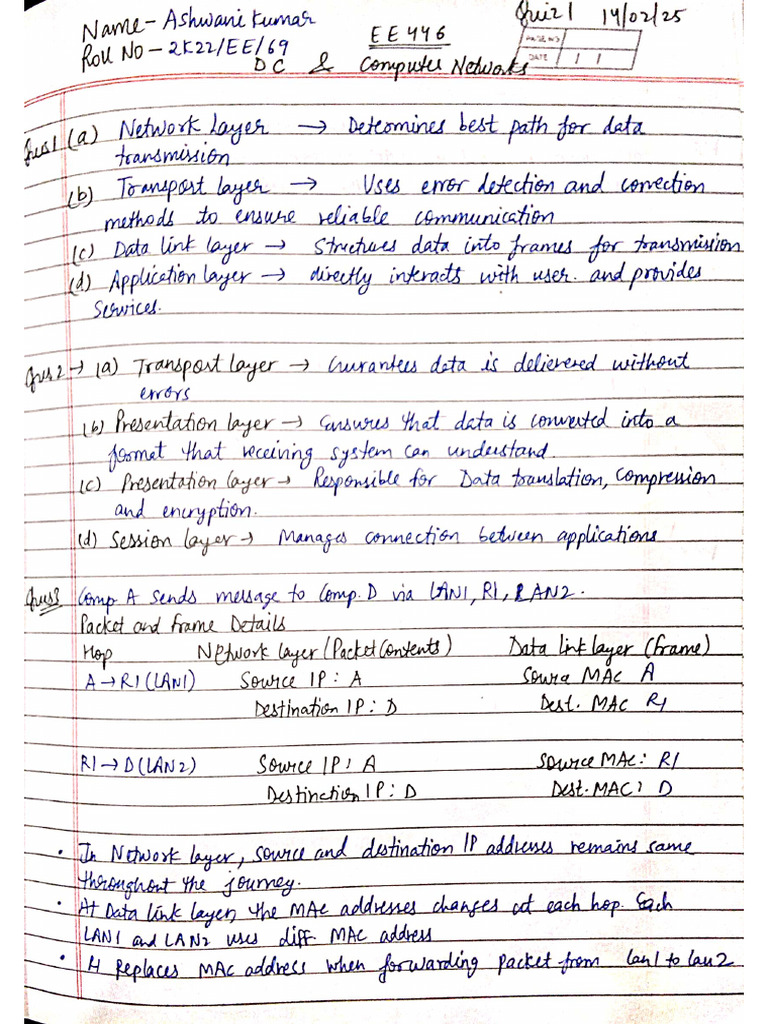 Name- Ashwani Kumar
Quiz 1 14/02/25
Roll No - 2K22/EE/69
EE446
PAGE NO
DATE / /
DC & Computer Networks
Ques1 (a) Network Layer → Determines best path for data
transmission
(b) Transport layer → Uses error detection and correction
methods to ensure reliable communication
(c) Data link layer → Structures data into frames for transmission
(d) Application layer → directly interacts with user. and provides
services.
Ques2 → (a) Transport layer → Gurantees data is delievered without
errors
(b) Presentation layer → Ensures that data is converted into a
format that receiving system can understand.
(c) Presentation layer → Responsible for Data translation, compression
and encryption.
(d) Session layer → Manages connection between applications
Ques3 Comp. A sends message to Comp. D via LAN1, R1, LAN2.
Packet and frame Details
Hop Network layer (Packet Contents) Data link layer (frame)
A → R1 (LAN1) Source IP: A Source MAC A
Destination IP: D Dest. MAC R1
R1 → D (LAN2) Source IP: A Source MAC: R1
Destinction IP: D Dest. MAC: D
• In Network layer, source and destination IP addresses remains same
throughout the journey.
• At Data link layer, the MAC addresses changes at each hop. Each
LAN1 and LAN2 uses diff. MAC address
• Replaces MAC address when forwarding packet from lan1 to lan2